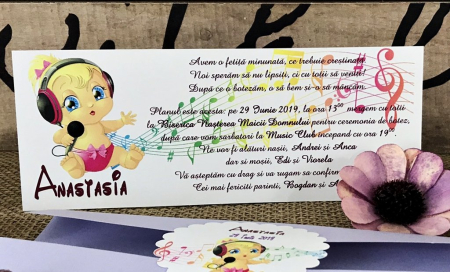 Avem o fetiță minunată, ce trebuie creștinată!
Noi sperăm să nu lipsiți, ci cu toții să veniți!
După ce o botezăm, o să bem și-o să mâncăm.
Planul este acesta: pe 29 Iunie 2019, la ora 13⁰⁰ mergem cu toții
la Biserica Nașterea Maicii Domnului pentru ceremonia de botez,
după care vom sărbători la Music Club începand cu ora 19
Ne vor fi alături nașii, Andrei și Anca
dar si moșii, Edi si Viorela
Vă așteptăm cu drag si va rugam sa confirm
Cei mai fericiti parinti, Bogdan și A
ANASTASIA
Anastasia
29 Iunie 2019